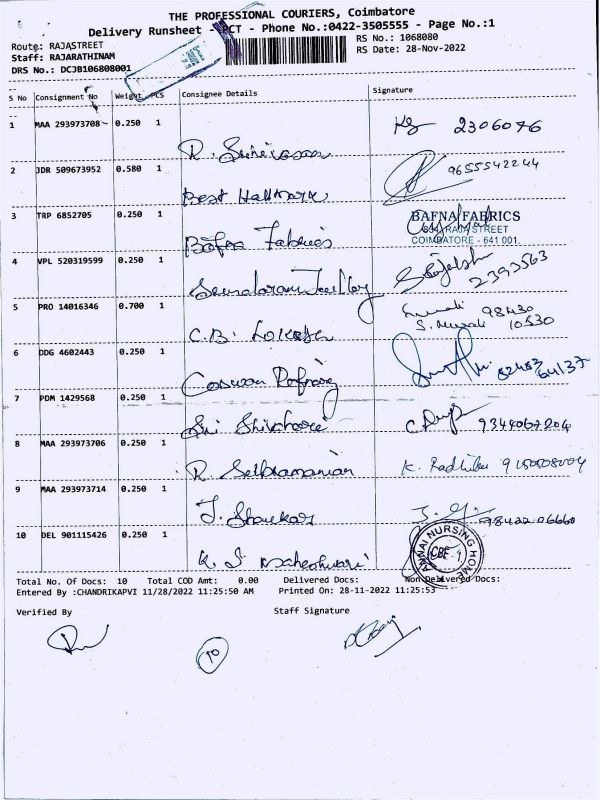 THE PROFESSIONAL COURIERS, Coimbatore
Delivery Runsheet - PCT - Phone No.:0422-3505555 - Page No.:1
Route: RAJASTREET
RS No.: 1068080
Staff: RAJARATHINAM
RS Date: 28-Nov-2022
DRS No.: DCJB106808001
S No Consignment No Weight PCS Consignee Details Signature
1 MAA 293973708 0.250 1 2306076
R. Srinivasan
2 JDR 509673952 0.580 1 9655542244
Best Hallmark
3 TRP 6852705 0.250 1 BAFNA FABRICS
RAJA STREET
COIMBATORE - 641 001.
Bafna Fabrics
4 VPL 520319599 0.250 1 2393563
5 PRO 14016346 0.700 1 98430
S. Murali 10530
C.B.
6 DDG 4602443 0.250 1
7 PDM 1429568 0.250 1 9344067204
Sri
8 MAA 293973706 0.250 1 K. Radhika
R. Subramanian
9 MAA 293973714 0.250 1 7842206660
J. Shankar
10 DEL 901115426 0.250 1 ANNAI NURSING HOME
CBE-1
K. S. Maheshwari
Total No. Of Docs: 10 Total COD Amt: 0.00 Delivered Docs: Non Delivered Docs:
Entered By :CHANDRIKAPVI 11/28/2022 11:25:50 AM Printed On: 28-11-2022 11:25:53
Verified By Staff Signature
10